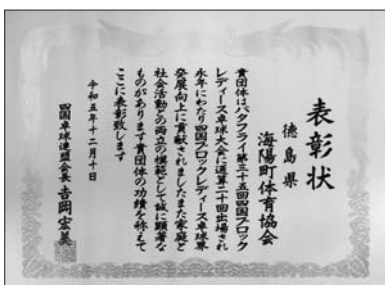 表彰状
徳島県
海陽町体育協会
貴団体はバタフライ第三十五回四国ブロック
レディース卓球大会に通算二十回出場され
永年にわたり四国ブロックレディース卓球界
発展向上に貢献されましたまた家庭と
社会活動との両立の模範として誠に顕著な
ものがあります貴団体の功績を称えて
ここに表彰致します
令和五年十二月十日
四国卓球連盟会長 吉岡宏美